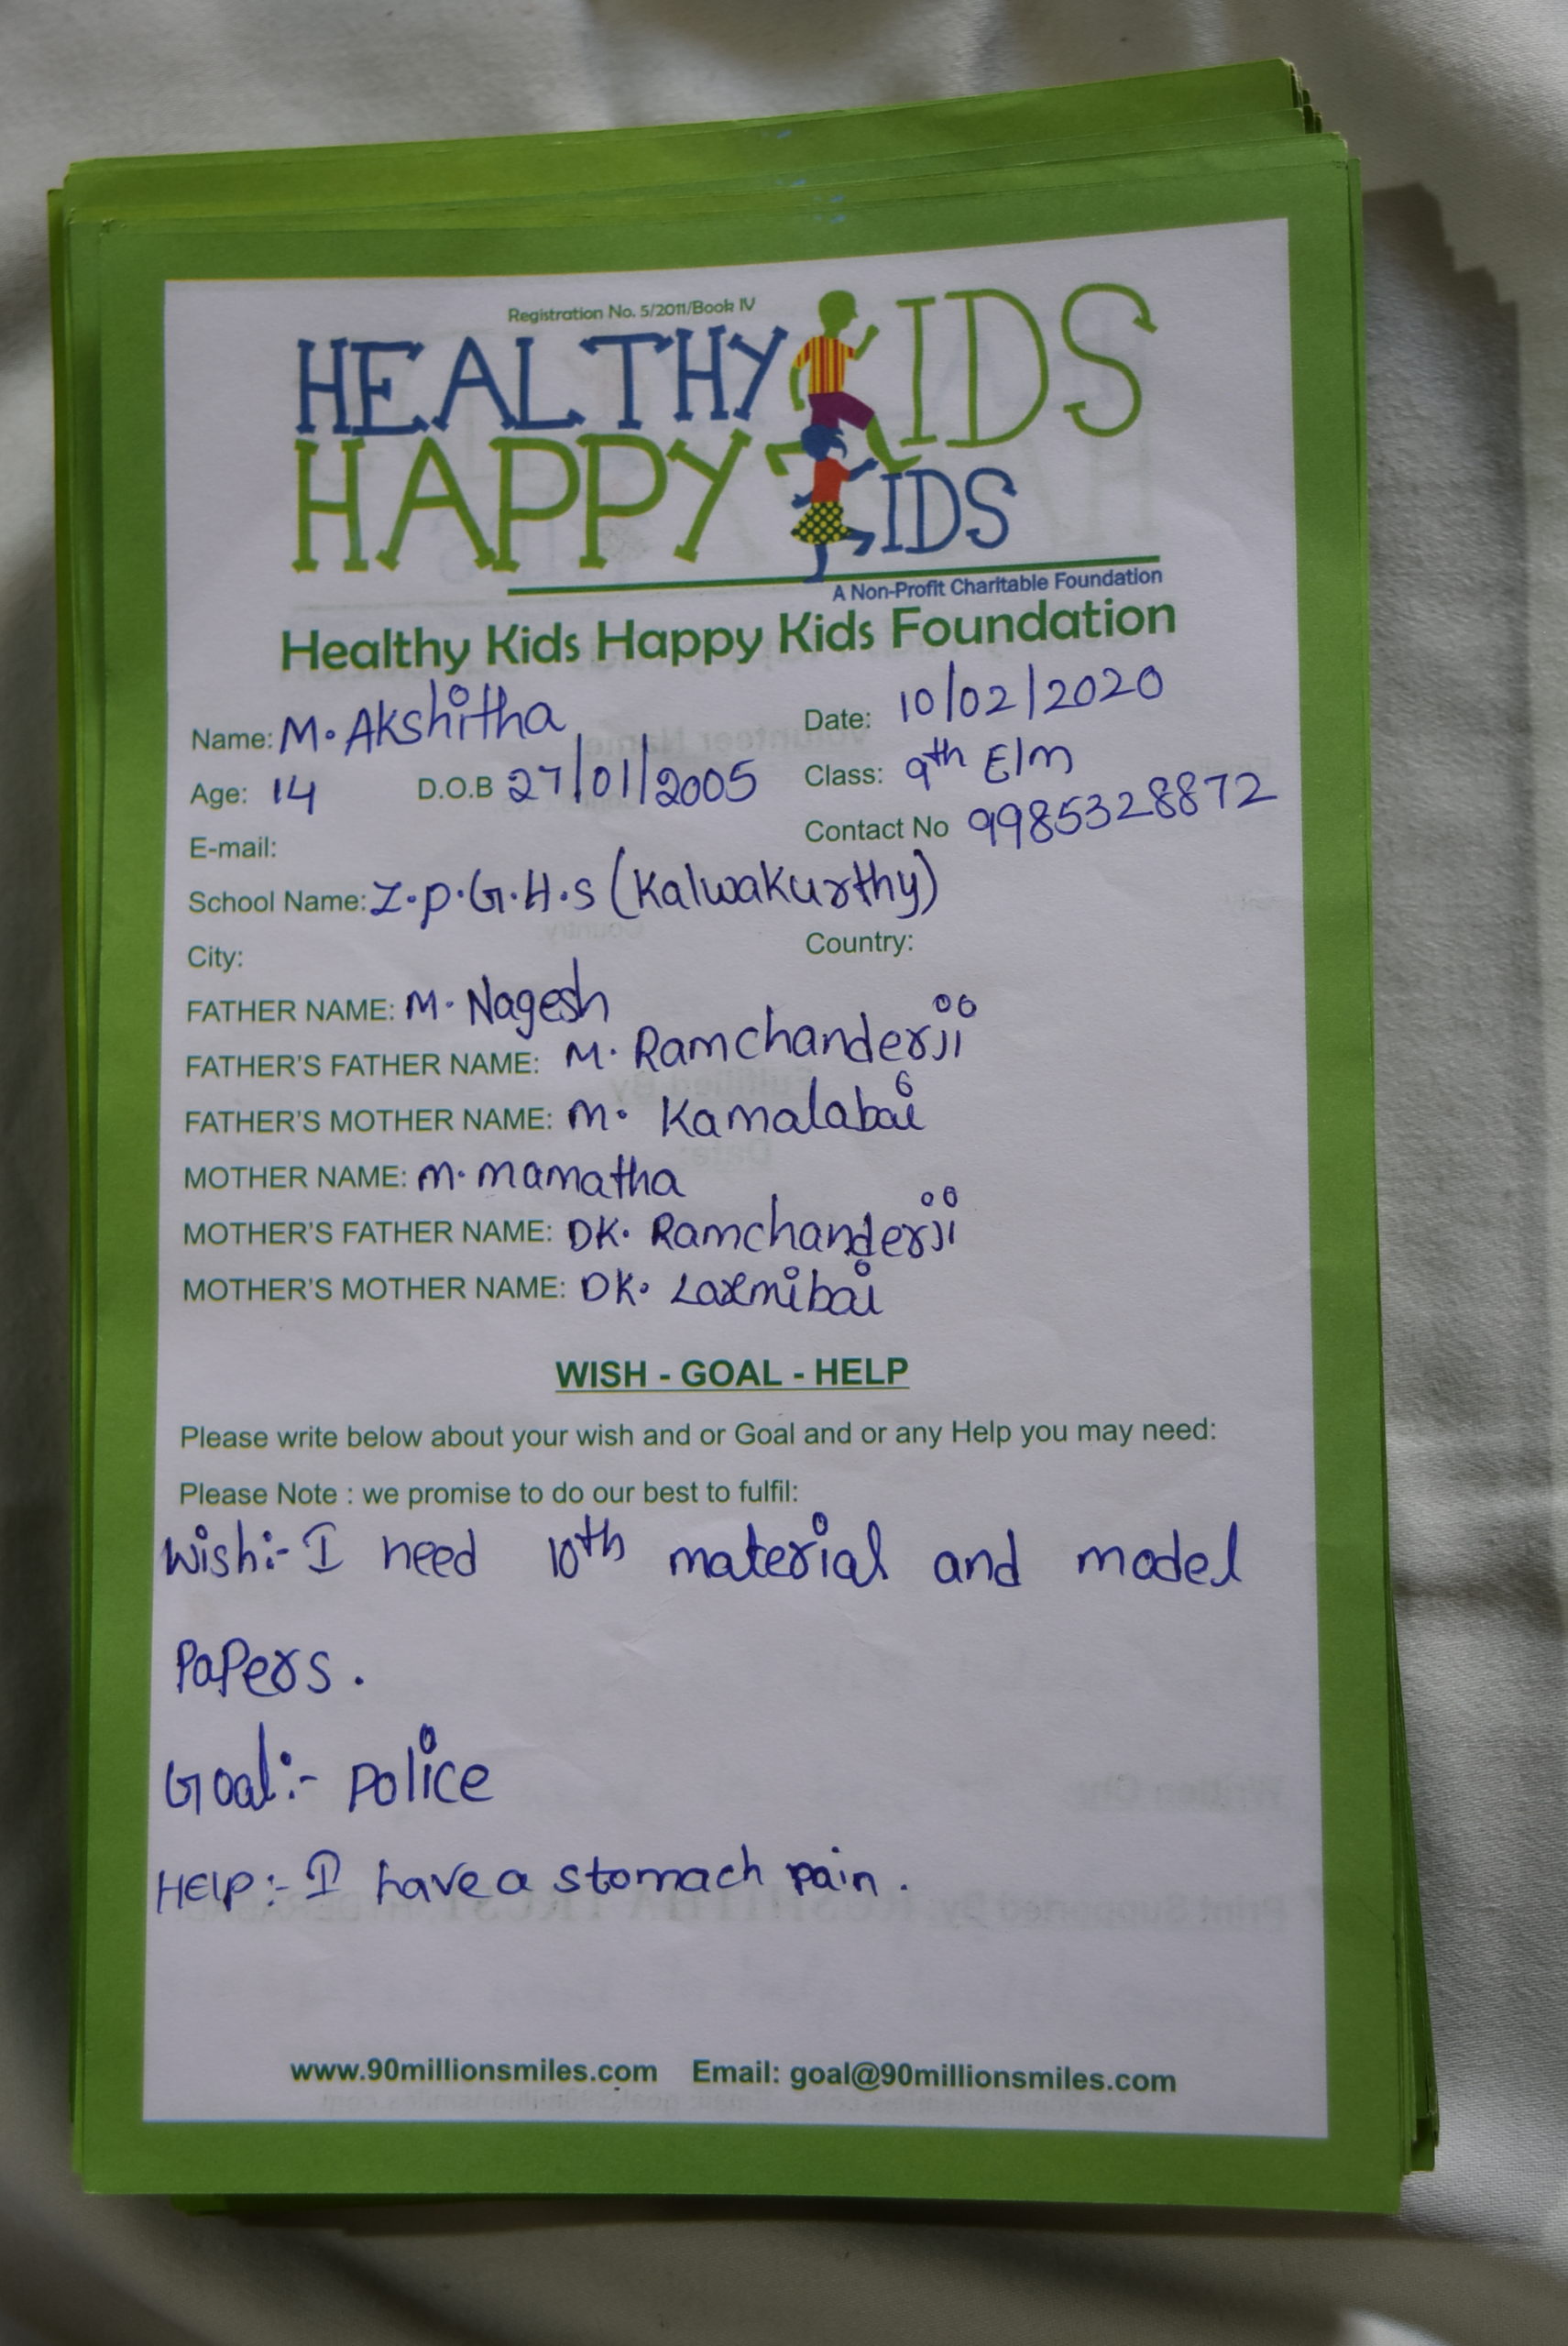 Registration No. 5/2011/Book IV
HEALTHY KIDS
HAPPY KIDS
A Non-Profit Charitable Foundation
Healthy Kids Happy Kids Foundation
Name: M. Akshitha Date: 10/02/2020
Age: 14 D.O.B 27/01/2005 Class: 9th E/m
E-mail: Contact No 9985328872
School Name: Z.P.G.H.S (Kalwakurthy)
City: Country:
FATHER NAME: M. Nagesh
FATHER'S FATHER NAME: M. Ramchanderji
FATHER'S MOTHER NAME: M. Kamalabai
MOTHER NAME: M. mamatha
MOTHER'S FATHER NAME: DK. Ramchanderji
MOTHER'S MOTHER NAME: DK. Laxmibai
WISH - GOAL - HELP
Please write below about your wish and or Goal and or any Help you may need:
Please Note : we promise to do our best to fulfil:
Wish:- I need 10th material and model
Papers.
Goal:- police
HELP:- I have a stomach pain.
www.90millionsmiles.com Email: goal@90millionsmiles.com